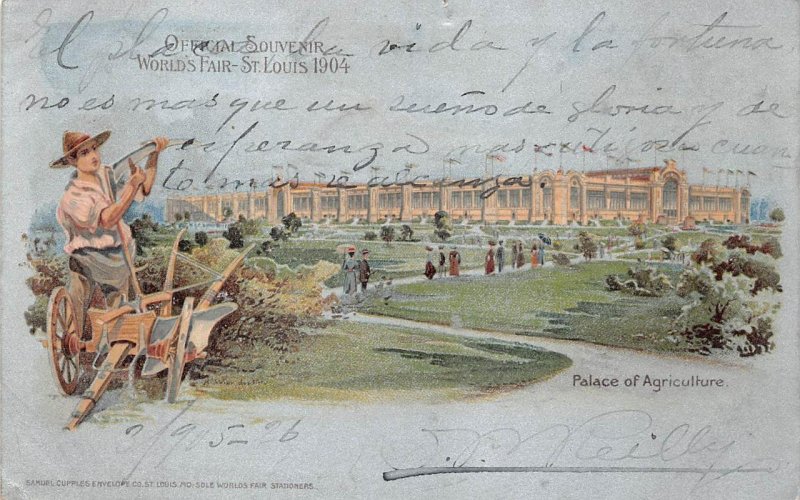 OFFICIAL SOUVENIR
WORLD'S FAIR - ST. LOUIS 1904
El placer la vida y la fortuna
no es mas que un sueño de gloria y de
esperanza mas cuan
to mas se alcanza
Palace of Agriculture.
J. M. Reilly
SAMUEL CUPPLES ENVELOPE CO. ST. LOUIS, MO. SOLE WORLDS FAIR STATIONERS.